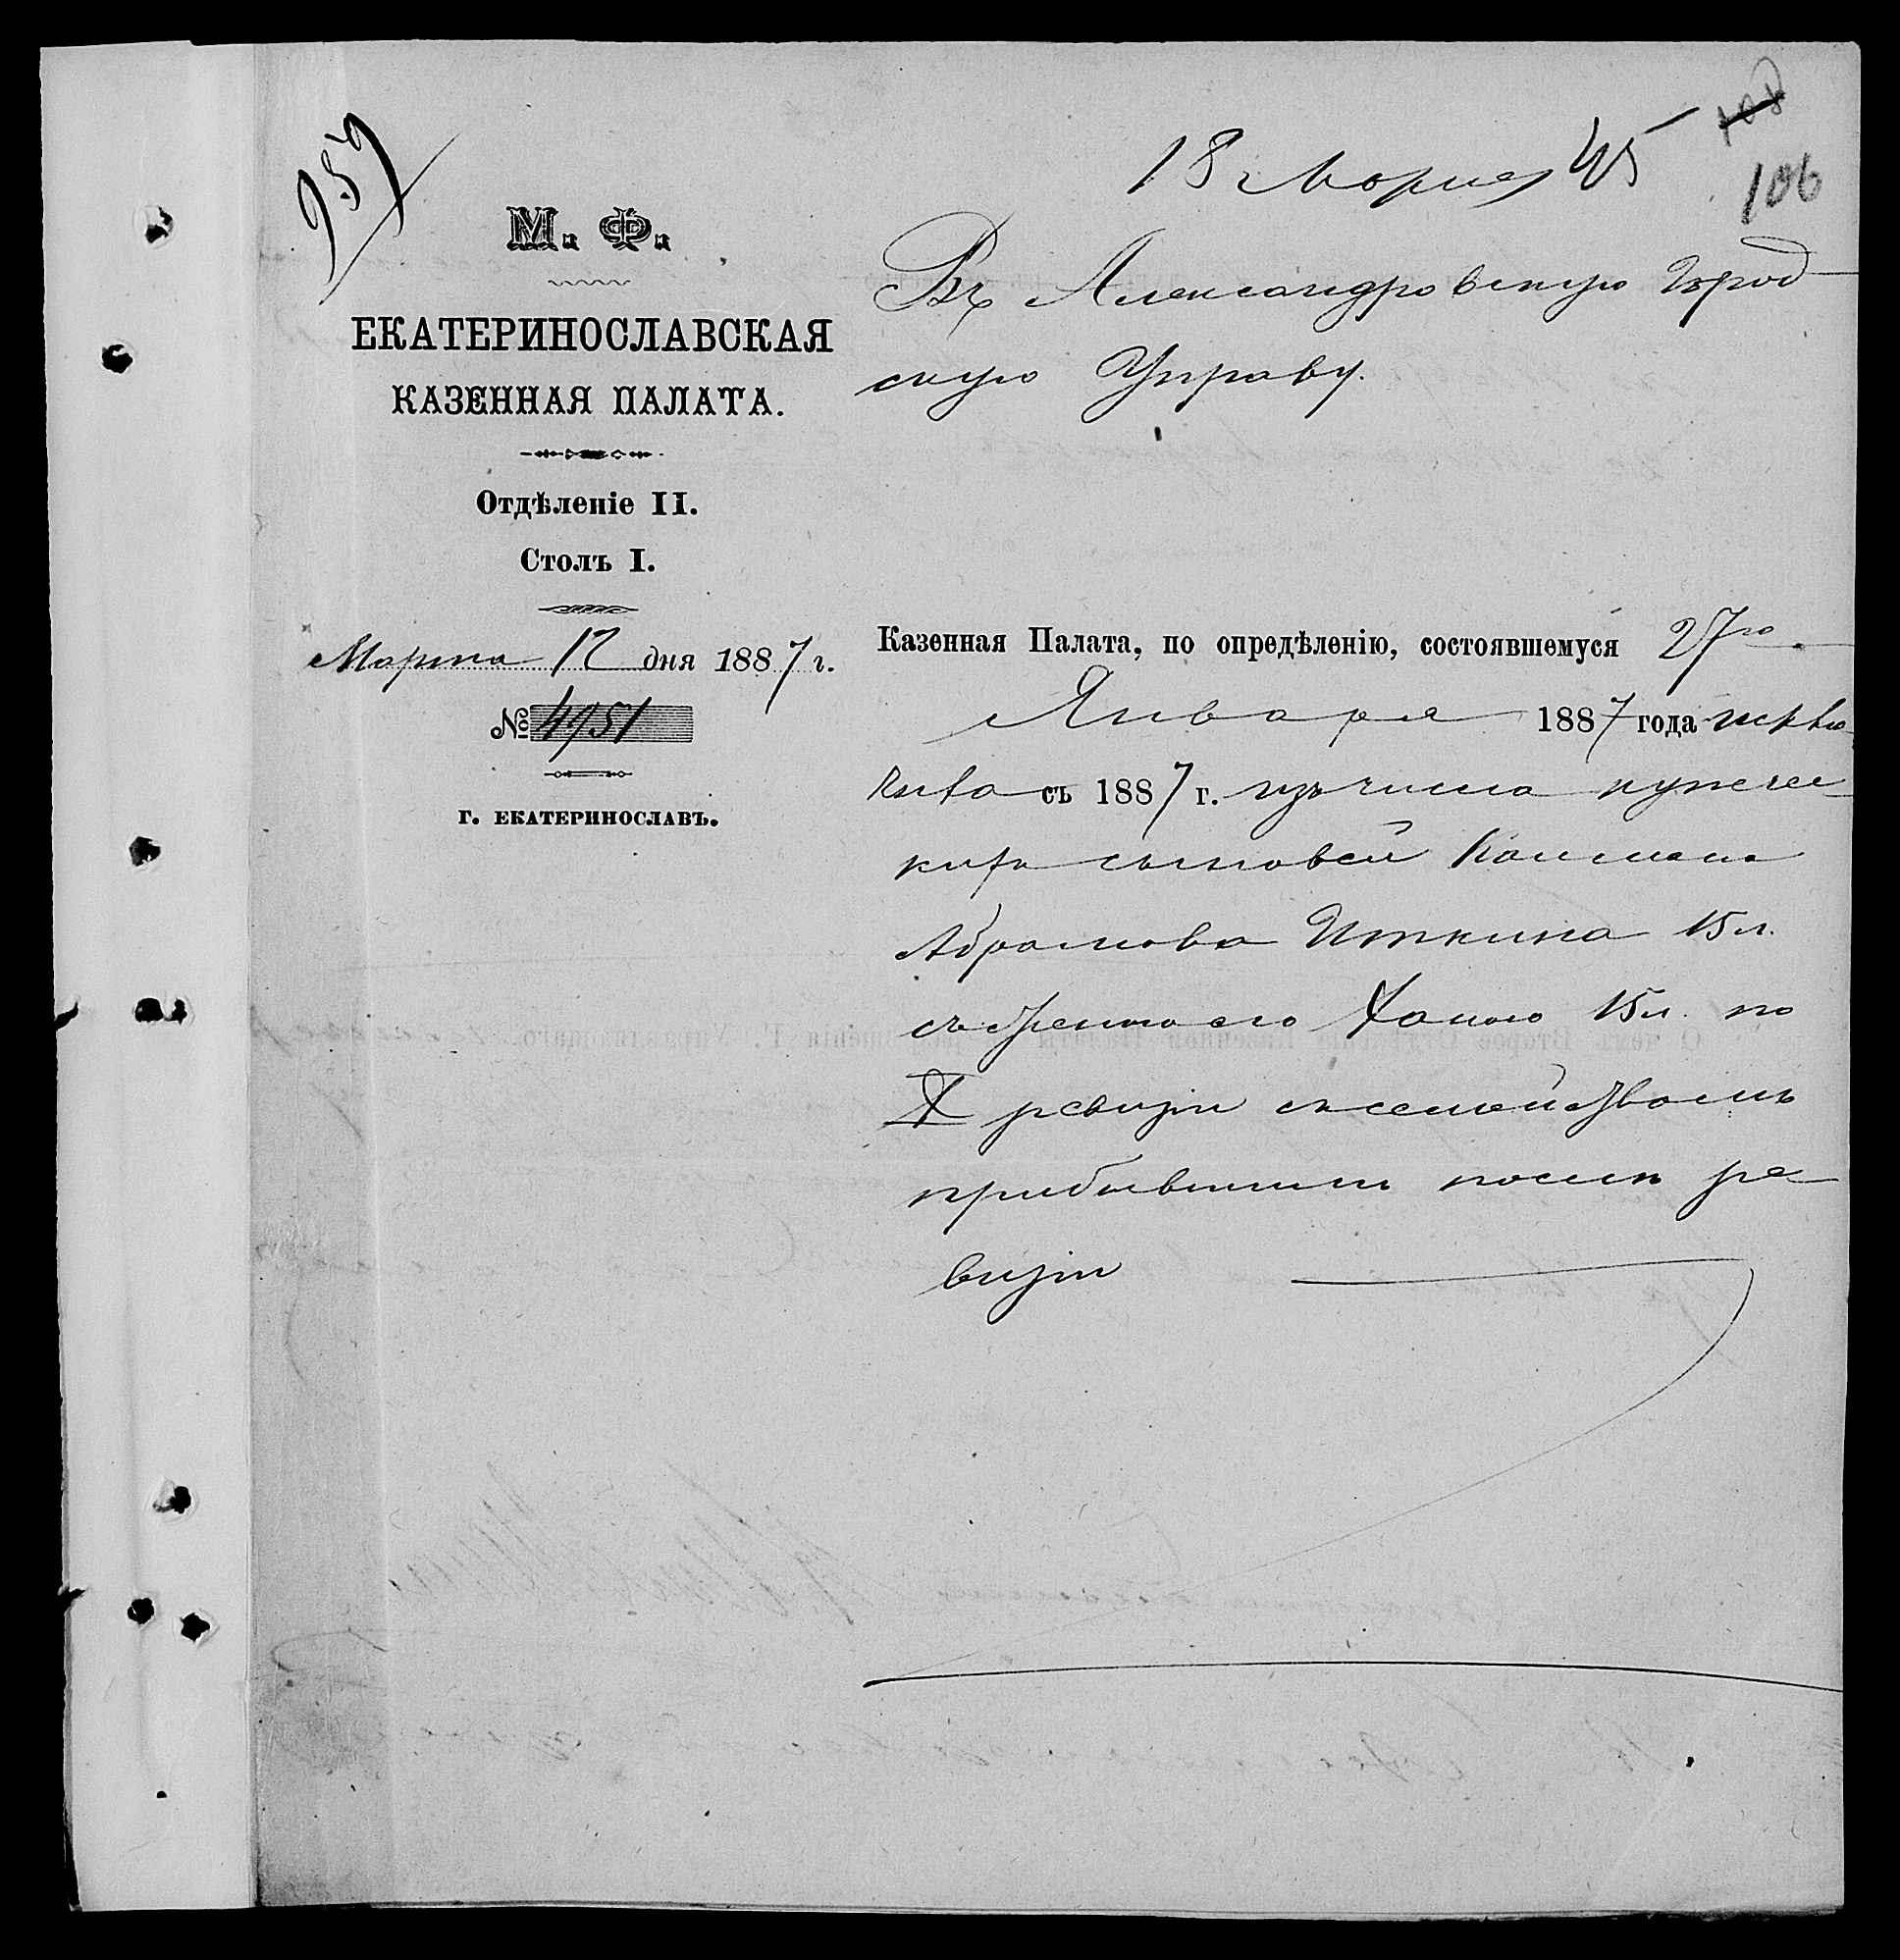 957
18 Марта 45
108
106
М. Ф.
ЕКАТЕРИНОСЛАВСКАЯ
КАЗЕННАЯ ПАЛАТА.
Отдѣленіе II.
Столъ I.
Марта 12 дня 1887 г.
№ 4951
г. ЕКАТЕРИНОСЛАВЪ.
Въ Александровскую Город
скую Управу.
Казенная Палата, по опредѣленію, состоявшемуся 27го
Января 1887 года исклю
чила съ 1887 г. изъ числа купечес
кихъ сыновей Калмана
Абрамова Иткина 15 л.
съ братомъ его 15 л. по
X ревизіи съ семействомъ
прибывшимъ послѣ ре
визіи